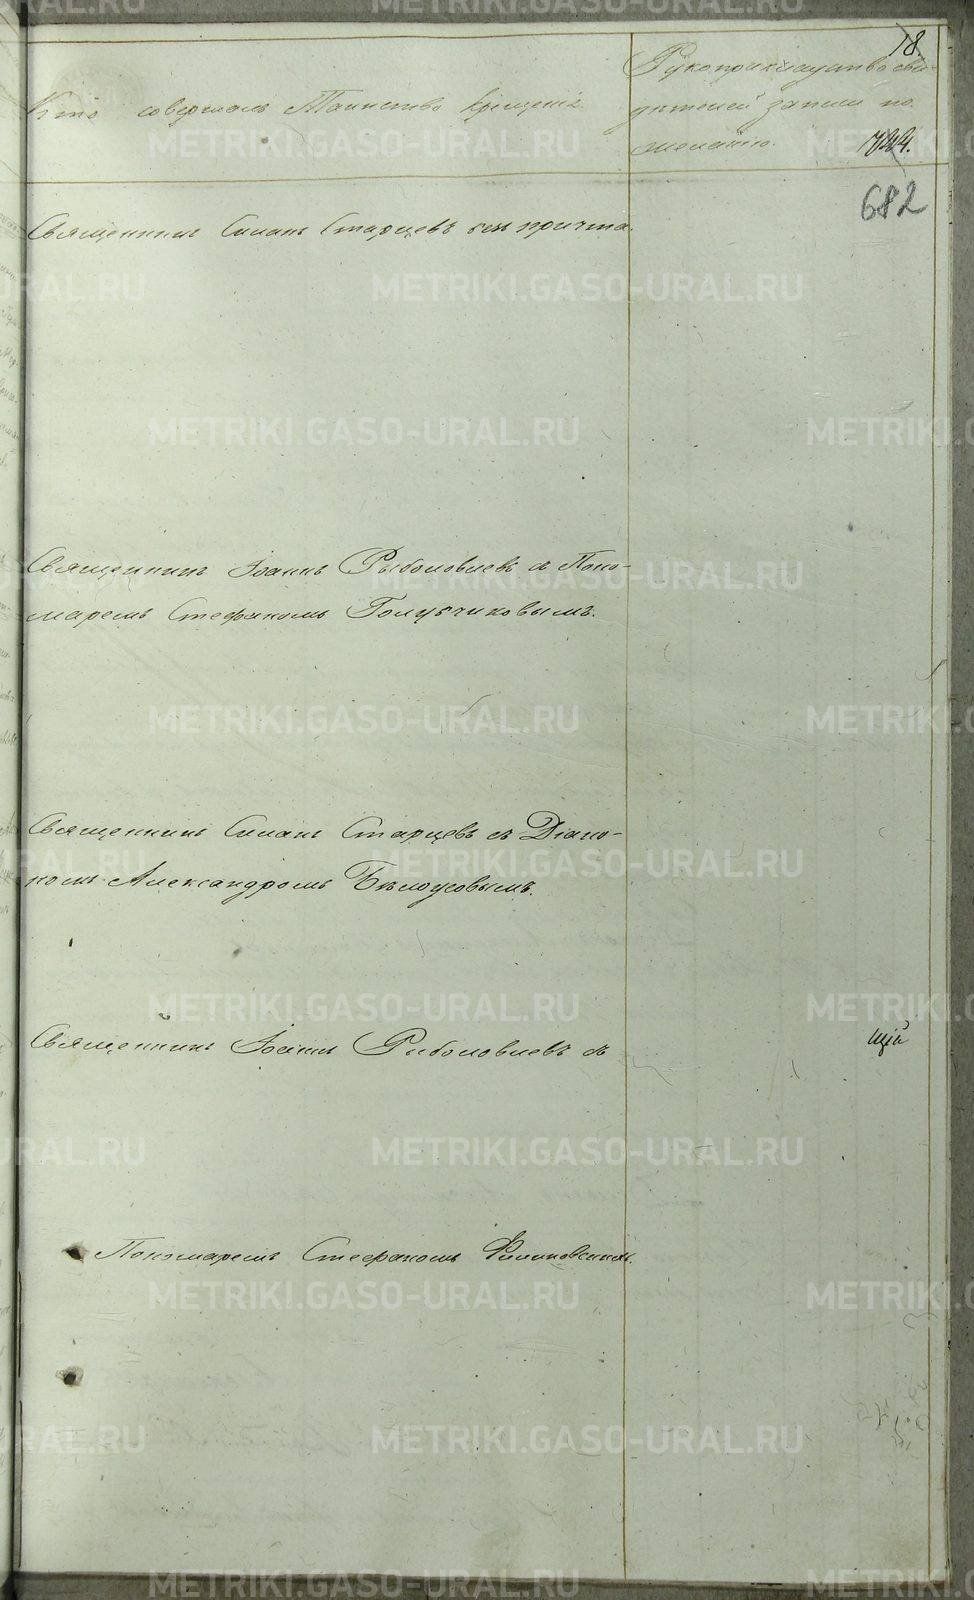 18.
Кто совершалъ Таинство крещенія.
Рукоприкладство сви-
дѣтелей записи по
желанію.
682
Священникъ Симонъ Старцевъ безъ причта.
Священникъ Іоаннъ Рыболовлевъ съ Поно-
маремъ Стефаномъ Голубчиковымъ.
Священникъ Симонъ Старцевъ съ Діако-
номъ Александромъ Бѣлоусовымъ.
Священникъ Іоаннъ Рыболовлевъ съ
щій
Пономаремъ Стефаномъ
METRIKI.GASO-URAL.RU